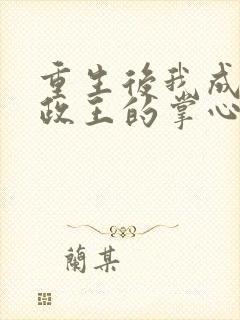 重生後我成
政王的掌心
蘭某